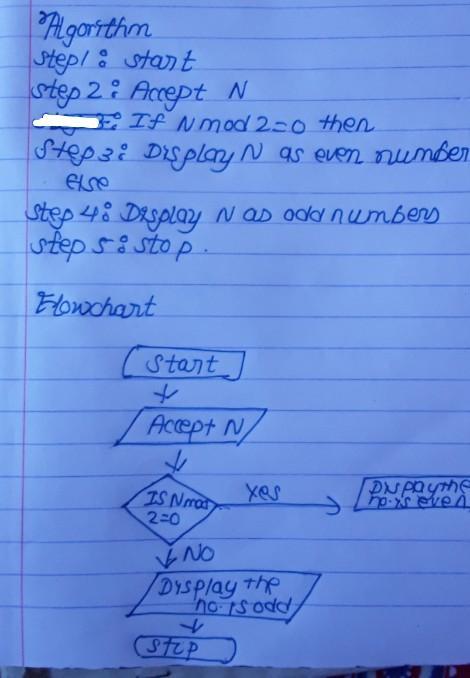 Algorithm
step1: start
step 2: Accept N
: If N mod 2=0 then
Step 3: Display N as even number
else
step 4: Display N as odd numbers
step 5: stop.
Flowchart
Start
Accept N
Is N mod
2=0
Yes
Dispaythe
no. is even
NO
Display the
no. is odd
Stop